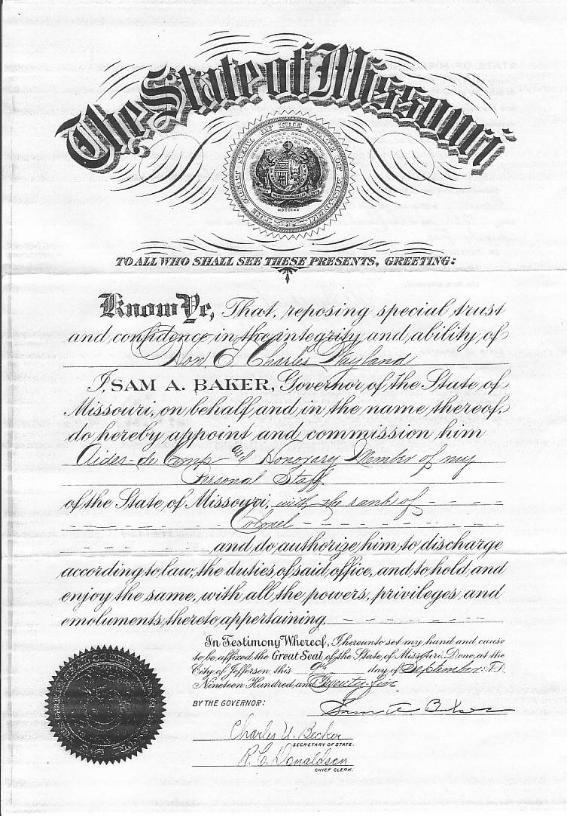 The State of Missouri
TO ALL WHO SHALL SEE THESE PRESENTS, GREETING:
Know Ye, That, reposing special trust
and confidence in the integrity and ability of
Hon. E Charles Wayland
I, SAM A. BAKER, Governor of the State of
Missouri, on behalf and in the name thereof,
do hereby appoint and commission him
Aides-de-Camp and Honorary Member of my
Personal Staff
of the State of Missouri, with the rank of
Colonel
and do authorize him to discharge
according to law, the duties of said office, and to hold and
enjoy the same, with all the powers, privileges and
emoluments thereto appertaining.
In Testimony Whereof, I hereunto set my hand and cause
to be affixed the Great Seal of the State of Missouri. Done at the
City of Jefferson this day of September A.D.
Nineteen Hundred and Twenty-five
BY THE GOVERNOR:
Sam A Baker
Charles U. Becker
SECRETARY OF STATE.
R. C. Donaldson
CHIEF CLERK.